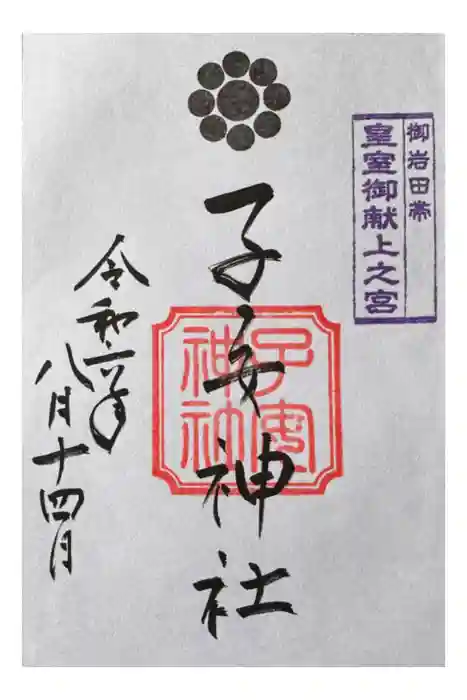 御岩田帯
皇室御献上之宮
子安神社
子安
神社
令和二年
八月十四日